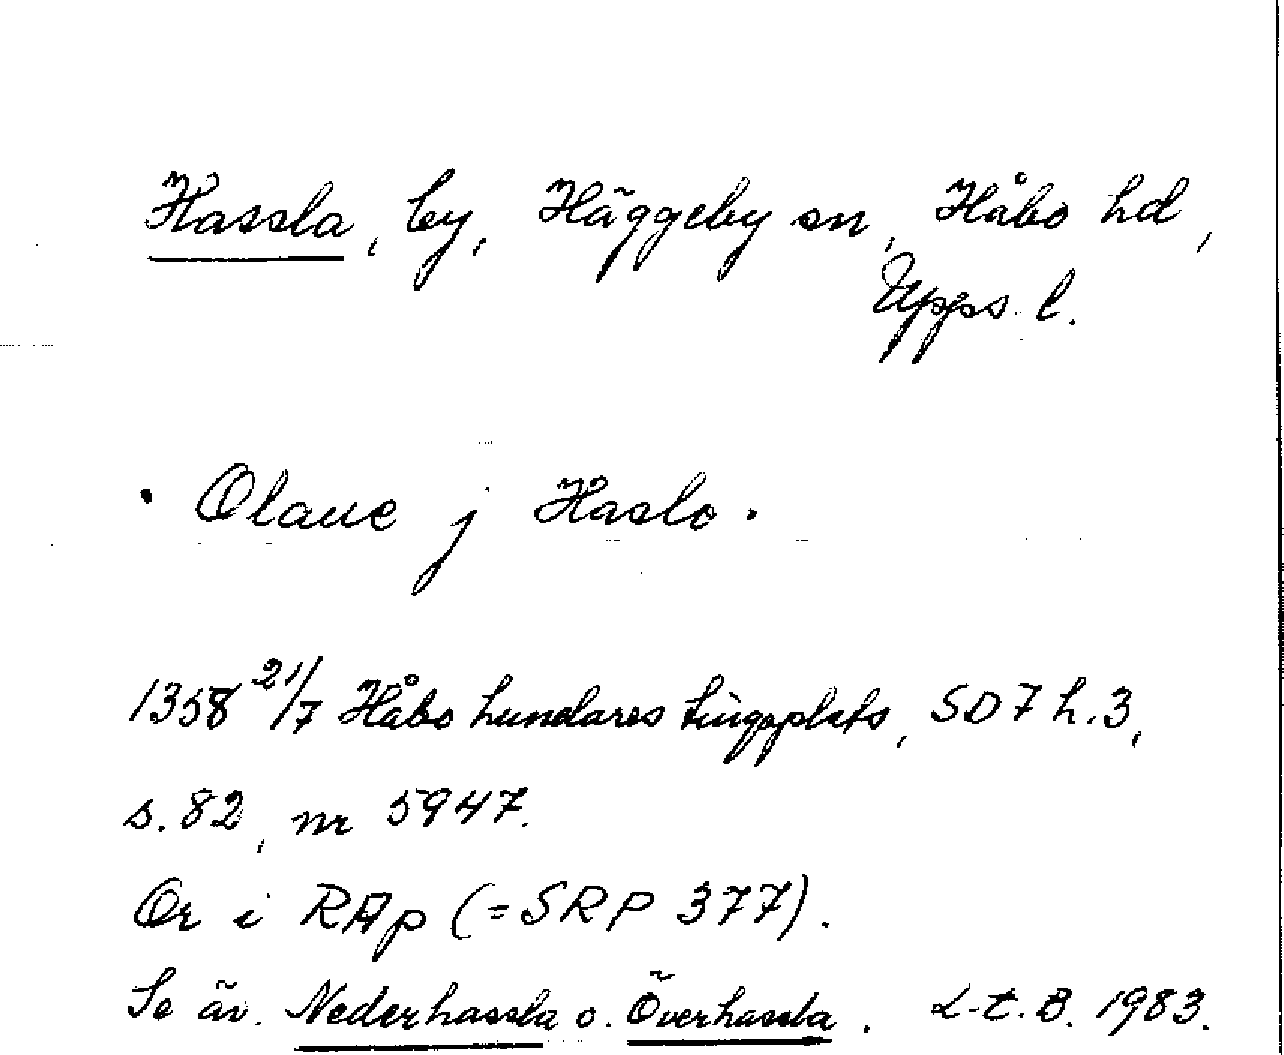 Hassla, by, Häggeby sn, Håbo hd,
Upps. l.
· Olaue j Haslo ·
1358 21/7 Håbo hundares tingsplats, SD 7 h. 3,
s. 82, nr 5947.
Or i RAp (= SRP 377).
Se äv. Nederhassla o. Överhassla. L-t. B. 1983.